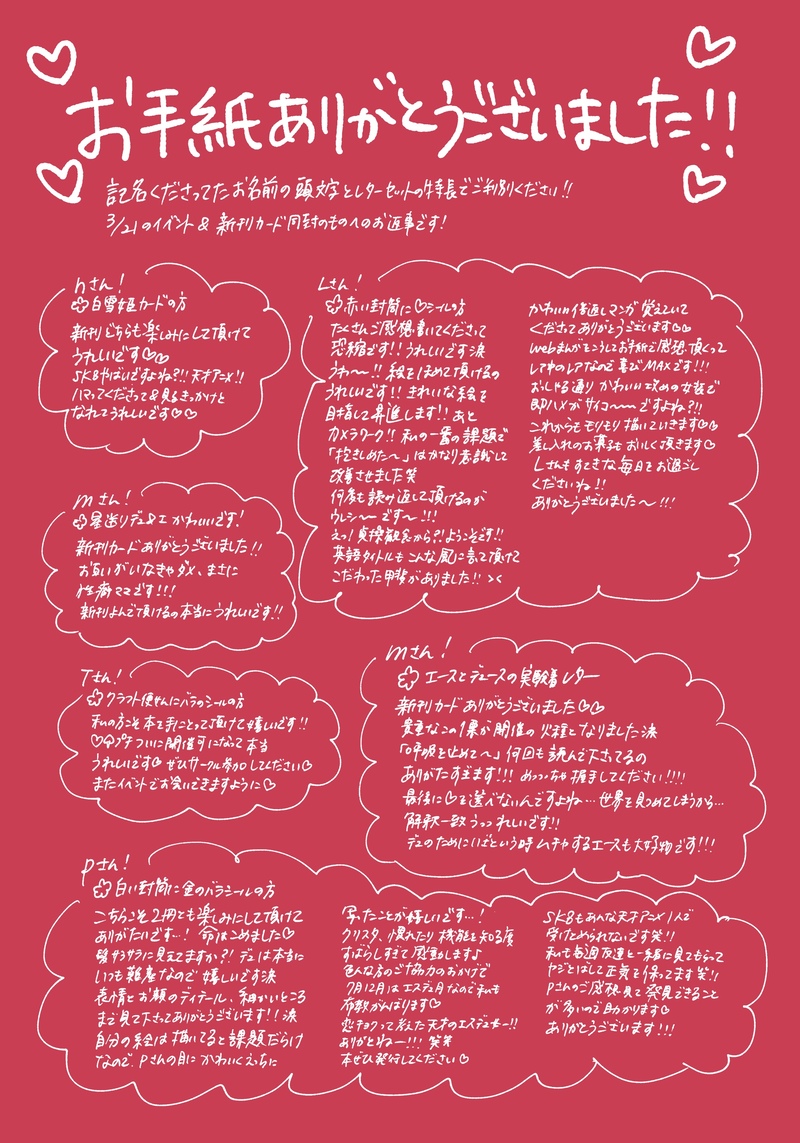 お手紙ありがとうございました!!
記名くださってたお名前の頭文字とレターセットの特長でご判別ください!!
3/21のイベント & 新刊カード同封のものへのお返事です!
hさん!
白雪姫カードの方
新刊どちらも楽しみにして頂けて
うれしいです♡♡
SK8やばいですよね?!! 天才アニメ!!
ハマってくださって&見るきっかけと
なれてうれしいです♡♡
Lさん!
赤い封筒に♡シールの方
たくさんご感想書いてくださって
恐縮です!! うれしいです涙
うわ〜!! 絵をほめて頂けるの
うれしいです!! きれいな絵を
目指して昇進します!! あと
カメラワーク!! 私の一番の課題で
「抱きしめた〜」はかなり意識して
改善させました笑
何度も読み返して頂けるのが
ウレシ〜〜です〜!!!
えっ! 貞操観念から?! ようこそです!!
英語タイトルもこんな風に言って頂けて
こだわった甲斐がありました!! ><
かわいい倍返しマンガ覚えていて
くださってありがとうございます♡♡
webまんがをこうしてお手紙で感想頂くって
レア中のレアなので喜びMAXです!!!
おっしゃる通りかわいい攻めの女装で
即ハメがサイコ〜〜〜ですよね?!!
これからもモリモリ描いていきます♡♡
差し入れのお菓子もおいしく頂きます♡
Lさんもすてきな毎日をお過ごし
くださいね!!
ありがとうございました〜!!!
mさん!
星送りデュエかわいいです!
新刊カードありがとうございました!!
お互いがいなきゃダメ、まさに
性癖ママです!!!
新刊よんで頂けるの本当にうれしいです!!
Tさん!
クラフト便せんにバラのシールの方
私の方こそ本を手にとって頂けて嬉しいです!!
♡♤プチついに開催可になって本当
うれしいです♡ ぜひサークル参加してください♡
またイベントでお会いできますように♡
mさん!
エースとデュースの実験着レター
新刊カードありがとうございました♡♡
貴重なこの1票が開催の火種となりました涙
「呼吸を止めて〜」何回も読んで下さってるの
ありがたすぎます!!! めっっちゃ擦ましてください!!!!
最後に♡を選べないんですよね…世界を見つめてしまうから…
解釈一致うっっれしいです!!
デュのためにいざという時ムチャするエースも大好物です!!!
Pさん!
白い封筒に金のバラシールの方
こちらこそ2冊とも楽しみにして頂けて
ありがたいです…! 命はこめました♡
髪サラサラに見えてますか?! デュは本当に
いつも難産なので嬉しいです涙
表情とお顔のディテール、細かいところ
まで見て下さってありがとうございます!! 涙
自分の絵は描いてると課題だらけ
なので、Pさんの目にかわいくえっちに
写ったことが嬉しいです…!
クリスタ、慣れたり機能を知る度
すばらしすぎて感動しますよ
色んな方のご協力のおかげで
7月12月はエスデュ月なので私も
布教がんばります♡
恋チョクって考えた天才のエスデュオー!!
ありがとねー!!! 笑笑
本ぜひ発行してください♡
SK8もあんな天才アニメ1人で
受けとめられないです笑!!
私も毎週友達と一緒に見てもらって
ヤジとばして正気を保ってます笑!!
Pさんのご感想見て発見できること
が多いので助かります♡
ありがとうございます!!!